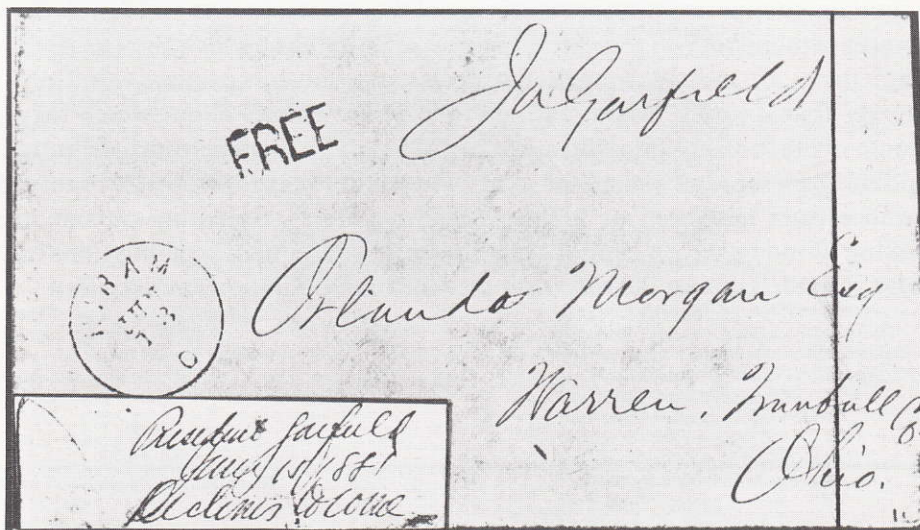 JAGarfield
FREE
HIRAM
O
Orlando Morgan Esq
Warren. Trumbull
Ohio.
President Garfield
1881
Declines to come